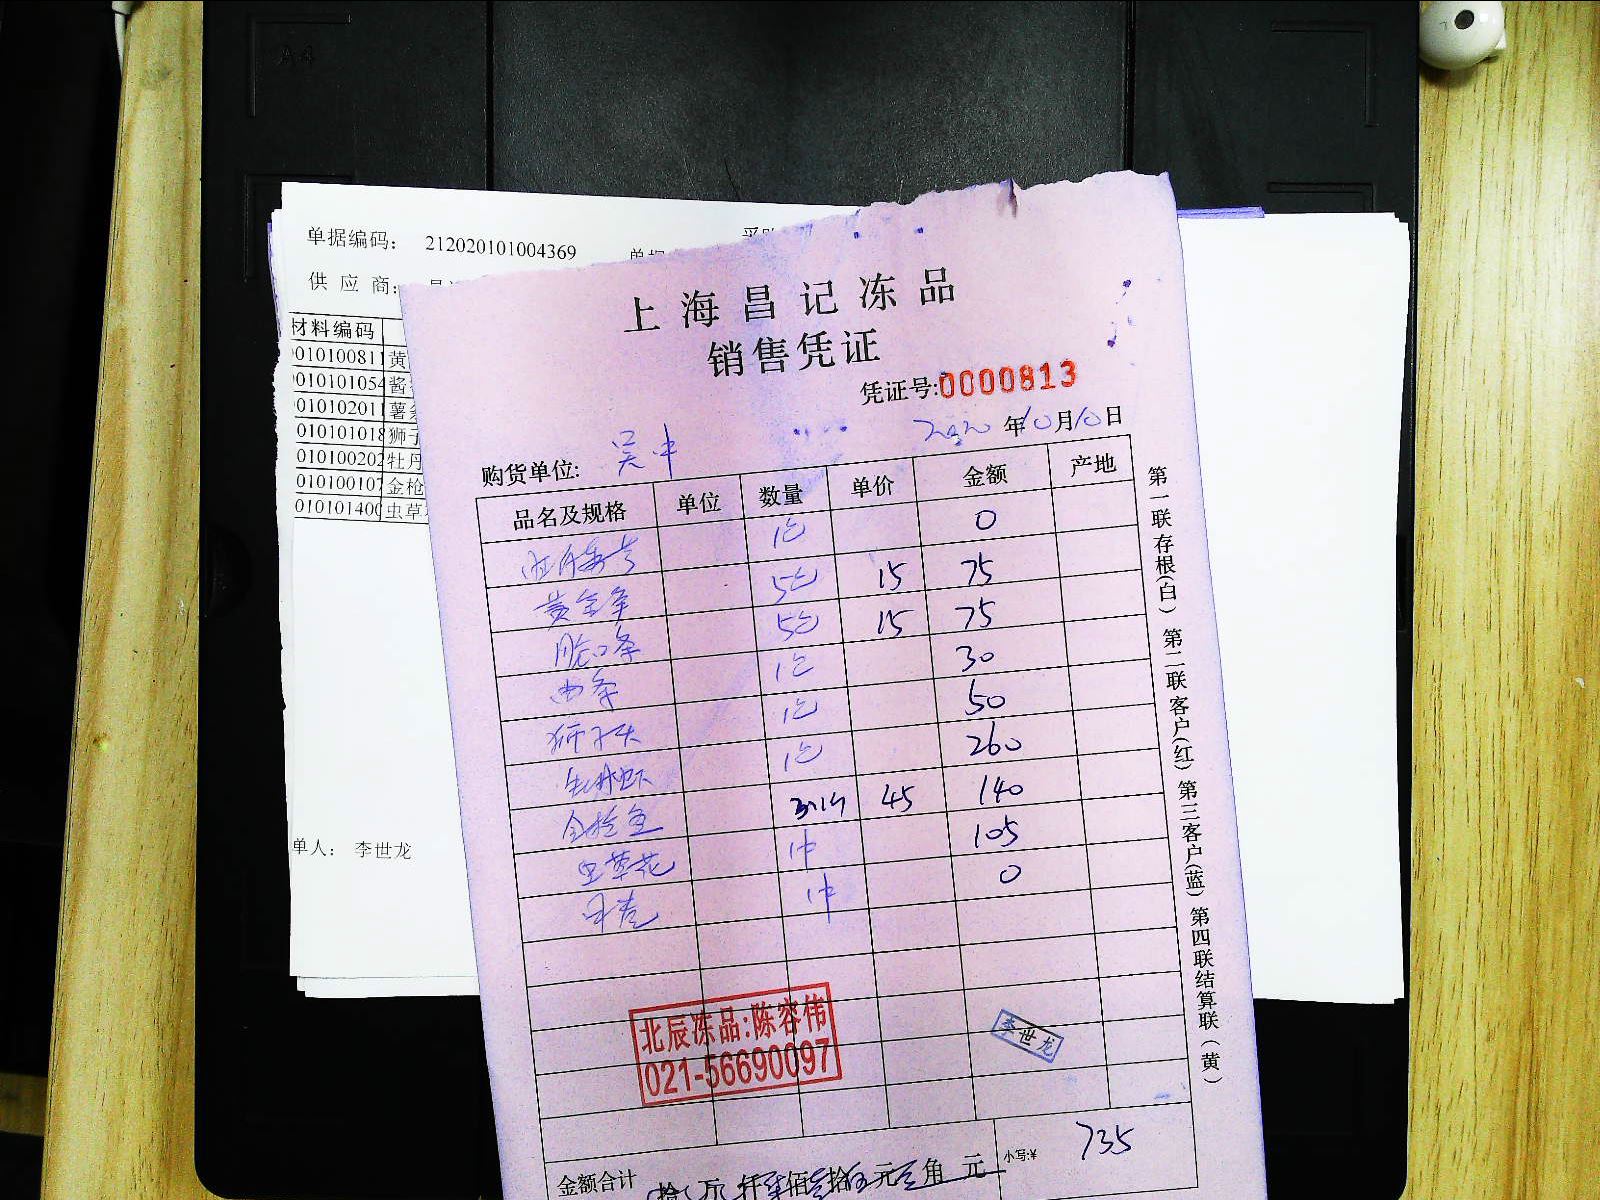 A4
单据编码： 212020101004369
供 应 商：
材料编码
0101008 黄
010101054 酱
010102011 薯条
010101018 狮子
010100202 牡丹
010100107 金枪
010101400 虫草
单人： 李世龙
上海昌记冻品
销售凭证
凭证号:0000813
2020 年10月10日
购货单位: 吴中
品名及规格 单位 数量 单价 金额 产地
1包 0
黄金 5包 15 75
5包 15 75
1包 30
狮子头 1包 50
牡丹虾 1包 260
金枪鱼 45 140
虫草花 1件 105
1件 0
北辰冻品:陈容伟
021-56690097
李世龙
金额合计 拾 万 仟 柒 佰 叁 拾 伍 元 角 元 小写:¥ 735
第一联存根(白) 第二联客户(红) 第三客户(蓝) 第四联结算联(黄)